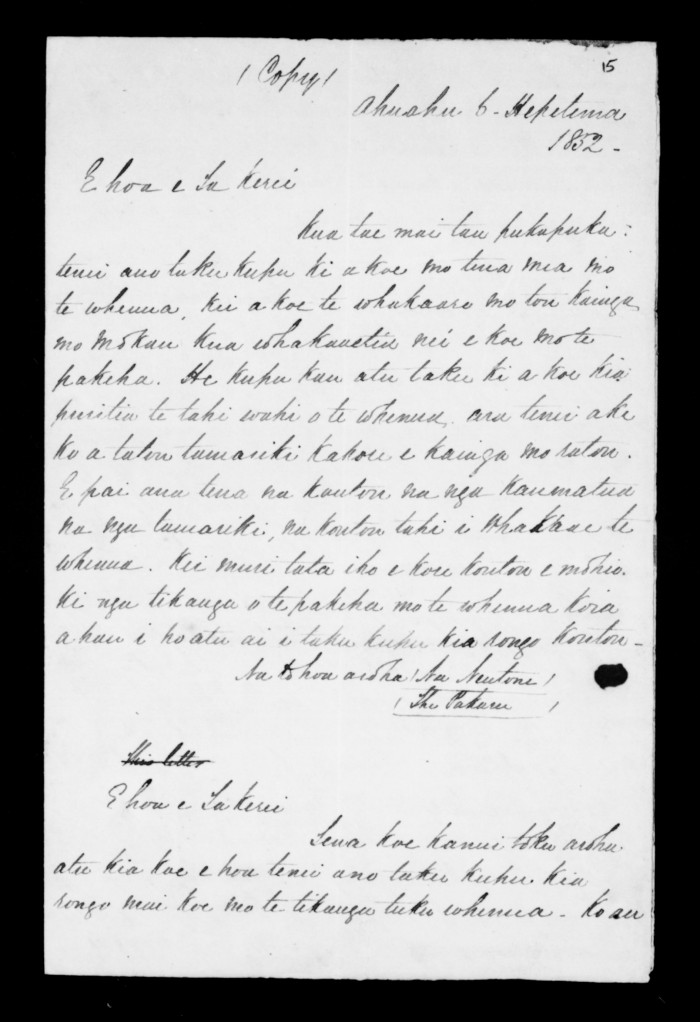 15
(Copy)
Ahuahu 6 - Hepetema
1852 -
E hoa e Ta Kerei
Kua tae mai tau pukapuka:
tenei ano taku kupu ki a koe mo tena mea mo
te whenua, kei a koe te whakaaro mo tou kainga
mo Mōkau kua whakaaetia nei e koe mo te
pakeha. He kupu kau atu taku ki a koe kia
puritia te tahi wahi o te whenua, ara tenei ake
ko a tatou tamariki kahore e kainga mo ratou.
E pai ana tena na koutou na nga kaumatua
na nga tamariki, na koutou tahi i whakaae te
whenua. Kei muri tata iho e kore koutou e mōhio.
ki nga tikanga o te pakeha mo te whenua koia
ahau i hoatu ai i taku kupu kia rongo koutou -
Na to hoa aroha (Na Neutone)
(Te Pakaru)
This letter
E hoa e Ta Kerei
Tena koe kanui toku aroha
atu kia koe e hoa tenei ano taku kupu kia
rongo mai koe mo te tikanga tuku whenua - Ko au